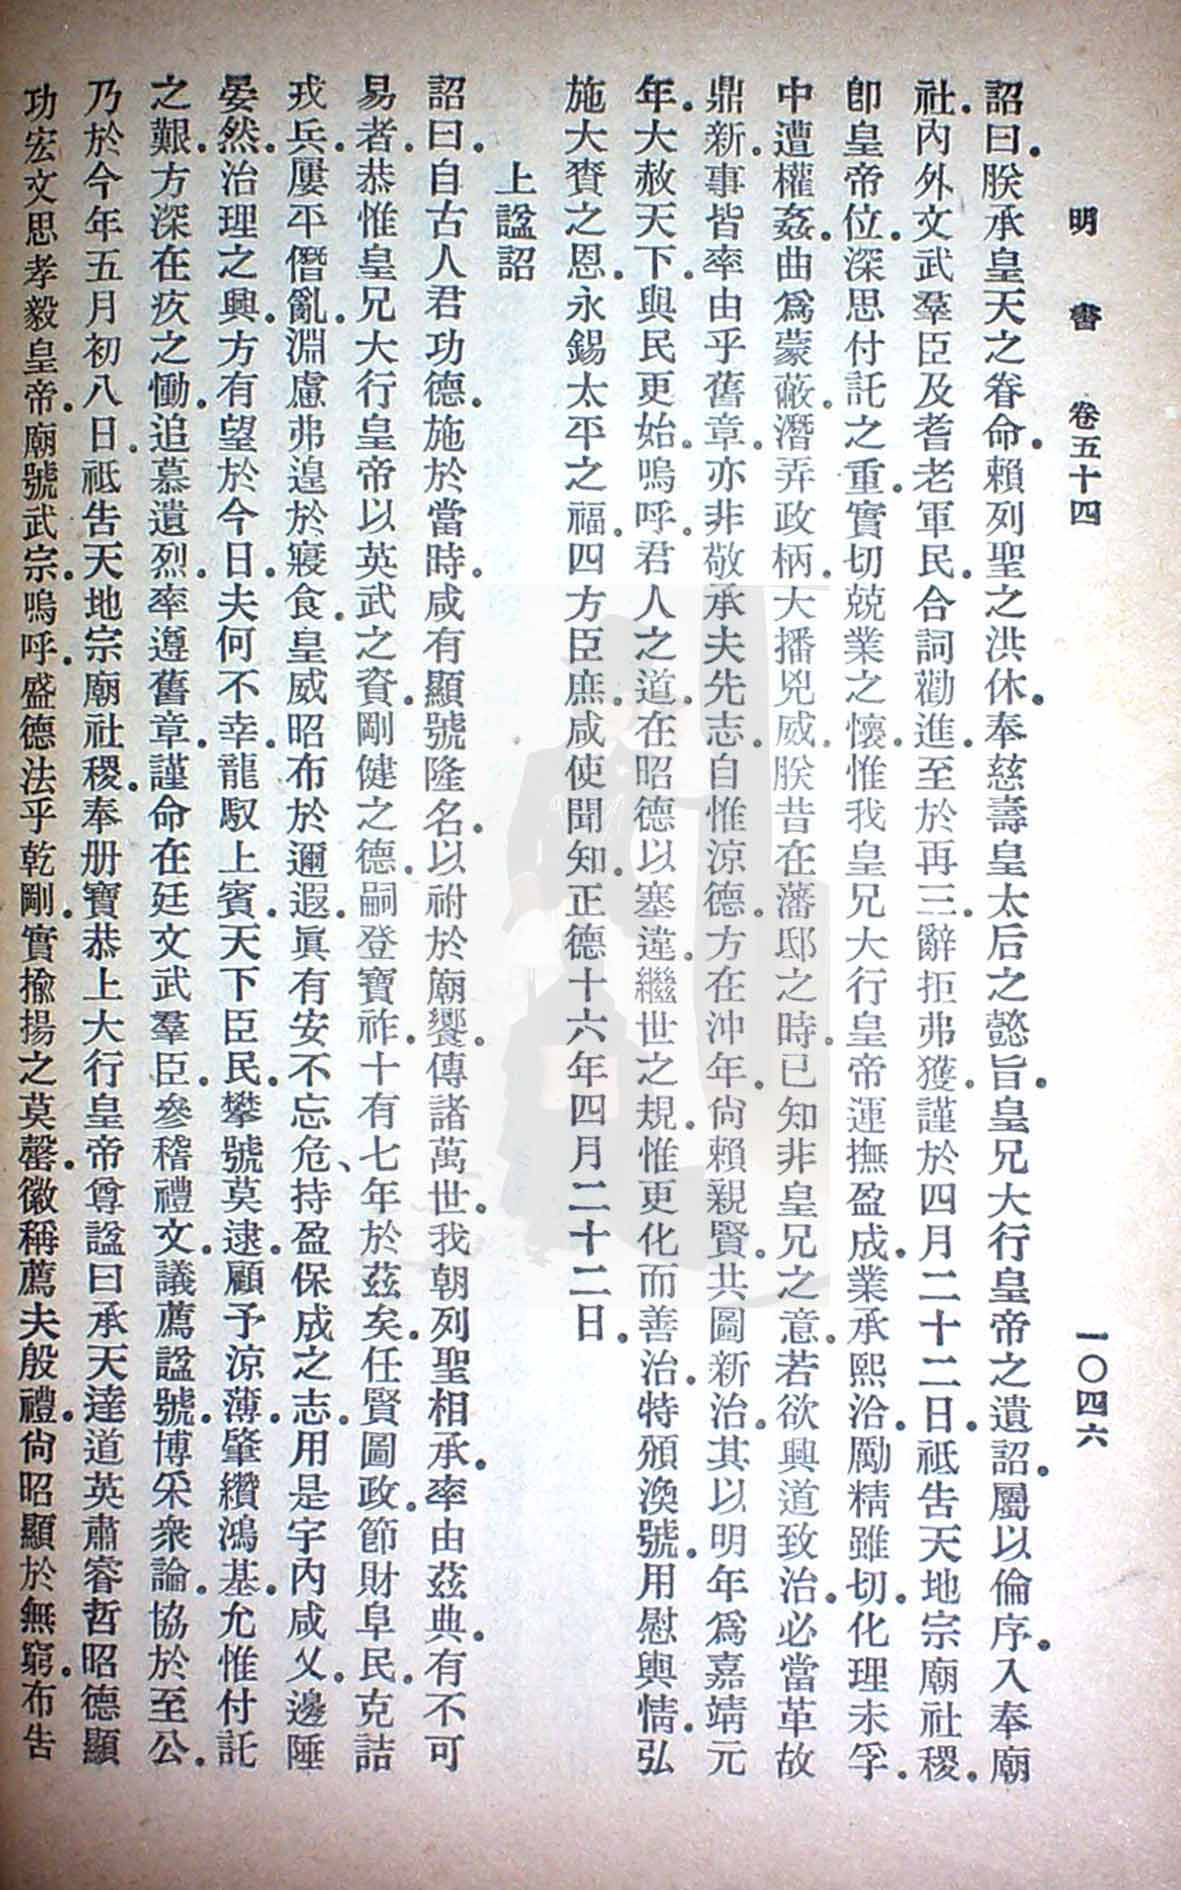 明書 卷五十四 一〇四六
詔曰。朕承皇天之眷命。賴列聖之洪休。奉慈壽皇太后之懿旨。皇兄大行皇帝之遺詔。屬以倫序。入奉廟
社。內外文武羣臣及耆老軍民。合詞勸進。至於再三。辭拒弗獲。謹於四月二十二日。祗告天地宗廟社稷。
卽皇帝位。深思付託之重。實切兢業之懷。惟我皇兄大行皇帝運撫盈成。業承熙洽。勵精雖切。化理未孚。
中遭權姦。曲爲蒙蔽。潛弄政柄。大播兇威。朕昔在藩邸之時。已知非皇兄之意。若欲興道致治。必當革故
鼎新。事皆率由乎舊章。亦非敬承夫先志。自惟涼德。方在沖年。尙賴親賢。共圖新治。其以明年爲嘉靖元
年。大赦天下。與民更始。嗚呼。君人之道。在昭德以塞違。繼世之規。惟更化而善治。特頒渙號。用慰輿情。弘
施大賚之恩。永錫太平之福。四方臣庶。咸使聞知。正德十六年四月二十二日。
上諡詔
詔曰。自古人君功德。施於當時。咸有顯號隆名。以祔於廟饗。傳諸萬世。我朝列聖相承。率由茲典。有不可
易者。恭惟皇兄大行皇帝以英武之資。剛健之德。嗣登寶祚。十有七年於茲矣。任賢圖政。節財阜民。克詰
戎兵。屢平僭亂。淵慮弗遑於寢食。皇威昭布於邇遐。眞有安不忘危、持盈保成之志。用是宇內咸乂。邊陲
晏然。治理之興。方有望於今日。夫何不幸。龍馭上賓。天下臣民。攀號莫逮。顧予涼薄。肇纘鴻基。允惟付託
之艱。方深在疚之慟。追慕遺烈。率遵舊章。謹命在廷文武羣臣。參稽禮文。議薦諡號。博采衆論。協於至公。
乃於今年五月初八日。祗告天地宗廟社稷。奉册寶恭上大行皇帝尊諡曰承天達道英肅睿哲昭德顯
功宏文思孝毅皇帝。廟號武宗。嗚呼。盛德法乎乾剛。實揄揚之莫罄。徽稱薦夫殷禮。尙昭顯於無窮。布告